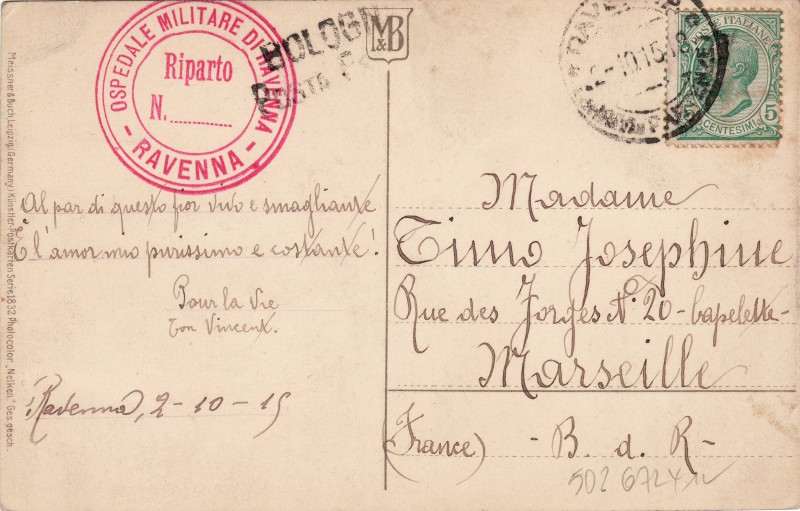 OSPEDALE MILITARE DI RAVENNA
Riparto
N.
- RAVENNA -
BOLOGN
POSTA
M&B
2-10.15.8
POSTE ITALIANE
5
CENTESIMI
Al par di questo fior vivo e smagliante
È l'amor mio purissimo e costante!
Pour la Vie
Ton Vincent.
Ravenna, 2-10-15
Madame
Timo Josephine
Rue des Forges N° 20 - Capelette -
Marseille
(France) - B. d. R -
Meissner & Buch, Leipzig, Germany / Künstler-Postkarten Serie 1832 Photocolor „Nelken." Ges. gesch.